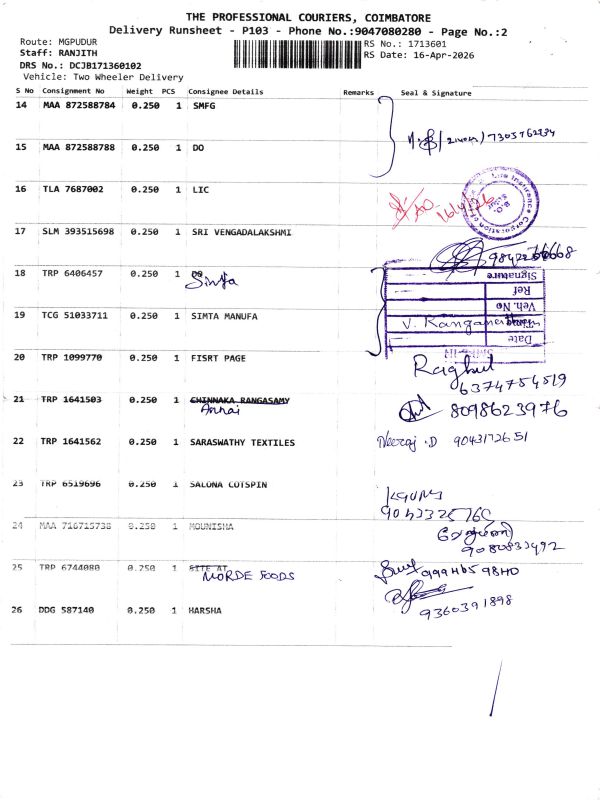 THE PROFESSIONAL COURIERS, COIMBATORE
Delivery Runsheet - P103 - Phone No.:9047080280 - Page No.:2
Route: MGPUDUR
RS No.: 1713601
Staff: RANJITH
RS Date: 16-Apr-2026
DRS No.: DCJB171360102
Vehicle: Two Wheeler Delivery
S No Consignment No Weight PCS Consignee Details Remarks Seal & Signature
14 MAA 872588784 0.250 1 SMFG
7305762234
15 MAA 872588788 0.250 1 DO
16 TLA 7687002 0.250 1 LIC
AO
16/4/26
Life Insurance Corporation of
B.O.
17 SLM 393515698 0.250 1 SRI VENGADALAKSHMI
18 TRP 6406457 0.250 1 DO
Simta
Signature
Ref
Veh. No
19 TCG 51033711 0.250 1 SIMTA MANUFA
V. Ranganathan
Time
Date
20 TRP 1099770 0.250 1 FISRT PAGE
Raghul
6374754519
21 TRP 1641503 0.250 1 CHINNAKA RANGASAMY
Annai
8098623976
22 TRP 1641562 0.250 1 SARASWATHY TEXTILES
Neeraj .D 9043172651
23 TRP 6519696 0.250 1 SALONA COTSPIN
24 MAA 716715738 0.250 1 MOUNISHA
9080833492
25 TRP 6744080 0.250 1 SITE AT
MORDE FOODS
9994659840
26 DDG 587140 0.250 1 HARSHA
9360391898